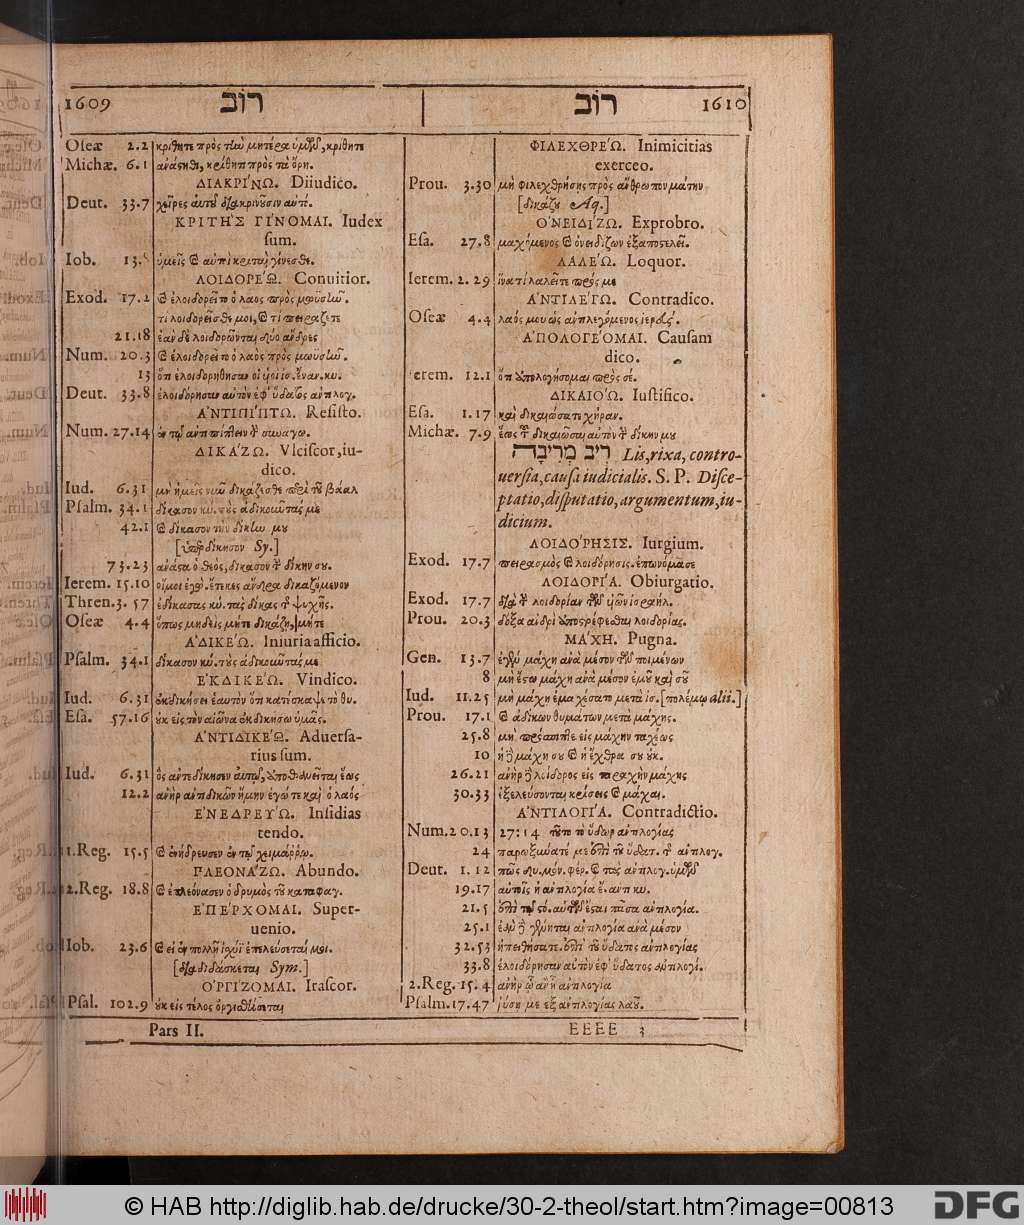 1609 רוֹב
Oseæ 2.2 κρίθητε πρὸς τὴν μητέρα ὑμῶν, κρίθητε
Michæ. 6.1 ἀνάστηθι, κρίθητι πρὸς τὰ ὄρη.
ΔΙΑΚΡΙ´ΝΩ. Diiudico.
Deut. 33.7 χεῖρες αὐτοῦ διακρινοῦσιν αὐτῷ.
ΚΡΙΤΗ`Σ ΓΙ´ΝΟΜΑΙ. Iudex
sum.
Iob. 13. ὑμεῖς κριταὶ γίνεσθε.
ΛΟΙΔΟΡΕ´Ω. Conuitior.
Exod. 17.2 ἐλοιδορεῖτο ὁ λαὸς πρὸς μωϋσῆν.
τί λοιδορεῖσθέ μοι, καὶ τί πειράζετε
21.18 ἐὰν δὲ λοιδορῶνται δύο ἄνδρες
Num. 20.3 καὶ ἐλοιδορεῖτο ὁ λαὸς πρὸς μωυσῆν.
13 ὅτι ἐλοιδορήθησαν οἱ υἱοὶ ἰσ. ἔναν. κυ.
Deut. 33.8 ἐλοιδόρησαν αὐτὸν ἐφ' ὕδατος ἀντιλογ.
Α'ΝΤΙΠΙ'ΠΤΩ. Resisto.
Num. 27.14 ἐν τῷ ἀντιπίπτειν τ συναγω.
ΔΙΚΑ´ΖΩ. Vlciscor, iu-
dico.
Iud. 6.31 μὴ ὑμεῖς νῦν δικάζεσθε περὶ τοῦ βάαλ
Psalm. 34.1 δίκασον κύ. τοὺς ἀδικοῦντάς με
42.1 καὶ δίκασον τὴν δίκην μου
[ὑπερδίκησον Sy.]
73.23 ἀνάστα ὁ θεὸς, δίκασον τ δίκην σου.
Ierem. 15.10 οἴμοι ἐγὼ. ἔτεκες ἄνδρα δικαζόμενον
Thren. 3. 57 ἐδίκασας κύ. τὰς δίκας τ ψυχῆς.
Oseæ 4.4 ὅπως μηδεὶς μήτε δικάζῃ, μήτε
Α'ΔΙΚΕ´Ω. Iniuria afficio.
Psalm. 34.1 δίκασον κύ. τοὺς ἀδικοῦντάς με
Ε'ΚΔΙΚΕ´Ω. Vindico.
Iud. 6.31 ἐκδικήσει ἑαυτὸν ὅτι κατέσκαψε τὸ θυ.
Esa. 57.16 οὐκ εἰς τὸν αἰῶνα ἐκδικήσω ὑμᾶς.
Α'ΝΤΙΔΙΚΕ´Ω. Aduersa-
rius sum.
Iud. 6.31 ὃς ἀντεδίκησεν αὐτῷ, ἀποθανεῖται ἕως
12.2 ἀνὴρ ἀντιδικῶν ἤμην ἐγώ τε καὶ ὁ λαός
Ε'ΝΕΔΡΕΥ´Ω. Insidias
tendo.
1.Reg. 15.5 καὶ ἐνήδρευσεν ἐν τῷ χειμάρρῳ.
ΠΛΕΟΝΑ´ΖΩ. Abundo.
2.Reg. 18.8 καὶ ἐπλεόνασεν ὁ δρυμὸς τοῦ καταφαγ.
Ε'ΠΕ´ΡΧΟΜΑΙ. Super-
uenio.
Iob. 23.6 καὶ εἰ ἐν πολλῇ ἰσχύϊ ἐπελεύσεταί μοι.
[διαδιδάσκεται Sym.]
Ο'ΡΓΙ´ΖΟΜΑΙ. Irascor.
Psal. 102.9 οὐκ εἰς τέλος ὀργισθήσεται
Pars II.
רוֹב 1610
ΦΙΛΕΧΘΡΕ´Ω. Inimicitias
exerceo.
Prou. 3.30 μὴ φιλεχθρήσῃς πρὸς ἄνθρωπον μάτην
[δικάζου Aq.]
Ο'ΝΕΙΔΙ´ΖΩ. Exprobro.
Esa. 27.8 μαχόμενος καὶ ὀνειδίζων ἐξαποστελεῖ.
ΛΑΛΕ´Ω. Loquor.
Ierem. 2. 29 ἵνα τί λαλεῖτε πρός με
Α'ΝΤΙΛΕ´ΓΩ. Contradico.
Oseæ 4.4 λαός μου ὡς ἀντιλεγόμενος ἱερεύς.
Α'ΠΟΛΟΓΕ´ΟΜΑΙ. Causam
dico.
Ierem. 12.1 ὅτι ἀπολογήσομαι πρὸς σέ.
ΔΙΚΑΙΟ´Ω. Iustifico.
Esa. 1.17 καὶ δικαιώσατε χήραν.
Michæ. 7.9 ἕως τοῦ δικαιῶσαι αὐτὸν τ δίκην μου
רִיב מְרִיבָה Lis, rixa, contro-
uersia, causa iudicialis. S. P. Disce-
ptatio, disputatio, argumentum, iu-
dicium.
ΛΟΙΔΟ´ΡΗΣΙΣ. Iurgium.
Exod. 17.7 πειρασμὸς καὶ λοιδόρησις. ἐπωνόμασε
ΛΟΙΔΟΡΙ´Α. Obiurgatio.
Exod. 17.7 διὰ τ λοιδορίαν τῶν υἱῶν ἰσραήλ.
Prou. 20.3 δόξα ἀνδρὶ ἀποστρέφεσθαι λοιδορίας.
ΜΑ´ΧΗ. Pugna.
Gen. 13.7 ἐγένετο μάχη ἀνὰ μέσον τῶν ποιμένων
8 μὴ ἔστω μάχη ἀνὰ μέσον ἐμοῦ καὶ σοῦ
Iud. 11.25 μὴ μάχῃ ἐμαχέσατο μετὰ ἰσ. [πολέμῳ alii.]
Prou. 17.1 καὶ ἀδίκων θυμάτων μετὰ μάχης.
25.8 μὴ πρόσπιπτε εἰς μάχην ταχέως
10 ἡ δὲ μάχη σου καὶ ἡ ἔχθρα σου οὐκ.
26.21 ἀνὴρ δὲ λοίδορος εἰς ταραχὴν μάχης
30.33 ἐξελεύσονται κρίσεις καὶ μάχαι.
Α'ΝΤΙΛΟΓΙ´Α. Contradictio.
Num. 20.13 27:14 τοῦτο τὸ ὕδωρ ἀντιλογίας
24 παρωξύνατέ με ἐπὶ τοῦ ὕδατ. τ ἀντιλογ.
Deut. 1.12 πῶς δυ. μόν. φέρ. καὶ τὰς ἀντιλογ. ὑμῶν
19.17 αὐτοῖς ἡ ἀντιλογία ἔ. αντι κυ.
21.5 ἐπὶ τῷ στό. αὐτῶν ἔσται πᾶσα ἀντιλογία.
25.1 ἐὰν δὲ γένηται ἀντιλογία ἀνὰ μέσον
32.53 ἠπειθήσατε. ἐπὶ τοῦ ὕδατος ἀντιλογίας
33.8 ἐλοιδόρησαν αὐτὸν ἐφ' ὕδατος ἀντιλογί.
2.Reg. 15.4 ἀνὴρ ᾧ ἂν ᾖ ἀντιλογία
Psalm. 17.47 ῥύσῃ με ἐξ ἀντιλογίας λαοῦ.
EEEE 3
© HAB http://diglib.hab.de/drucke/30-2-theol/start.htm?image=00813
DFG